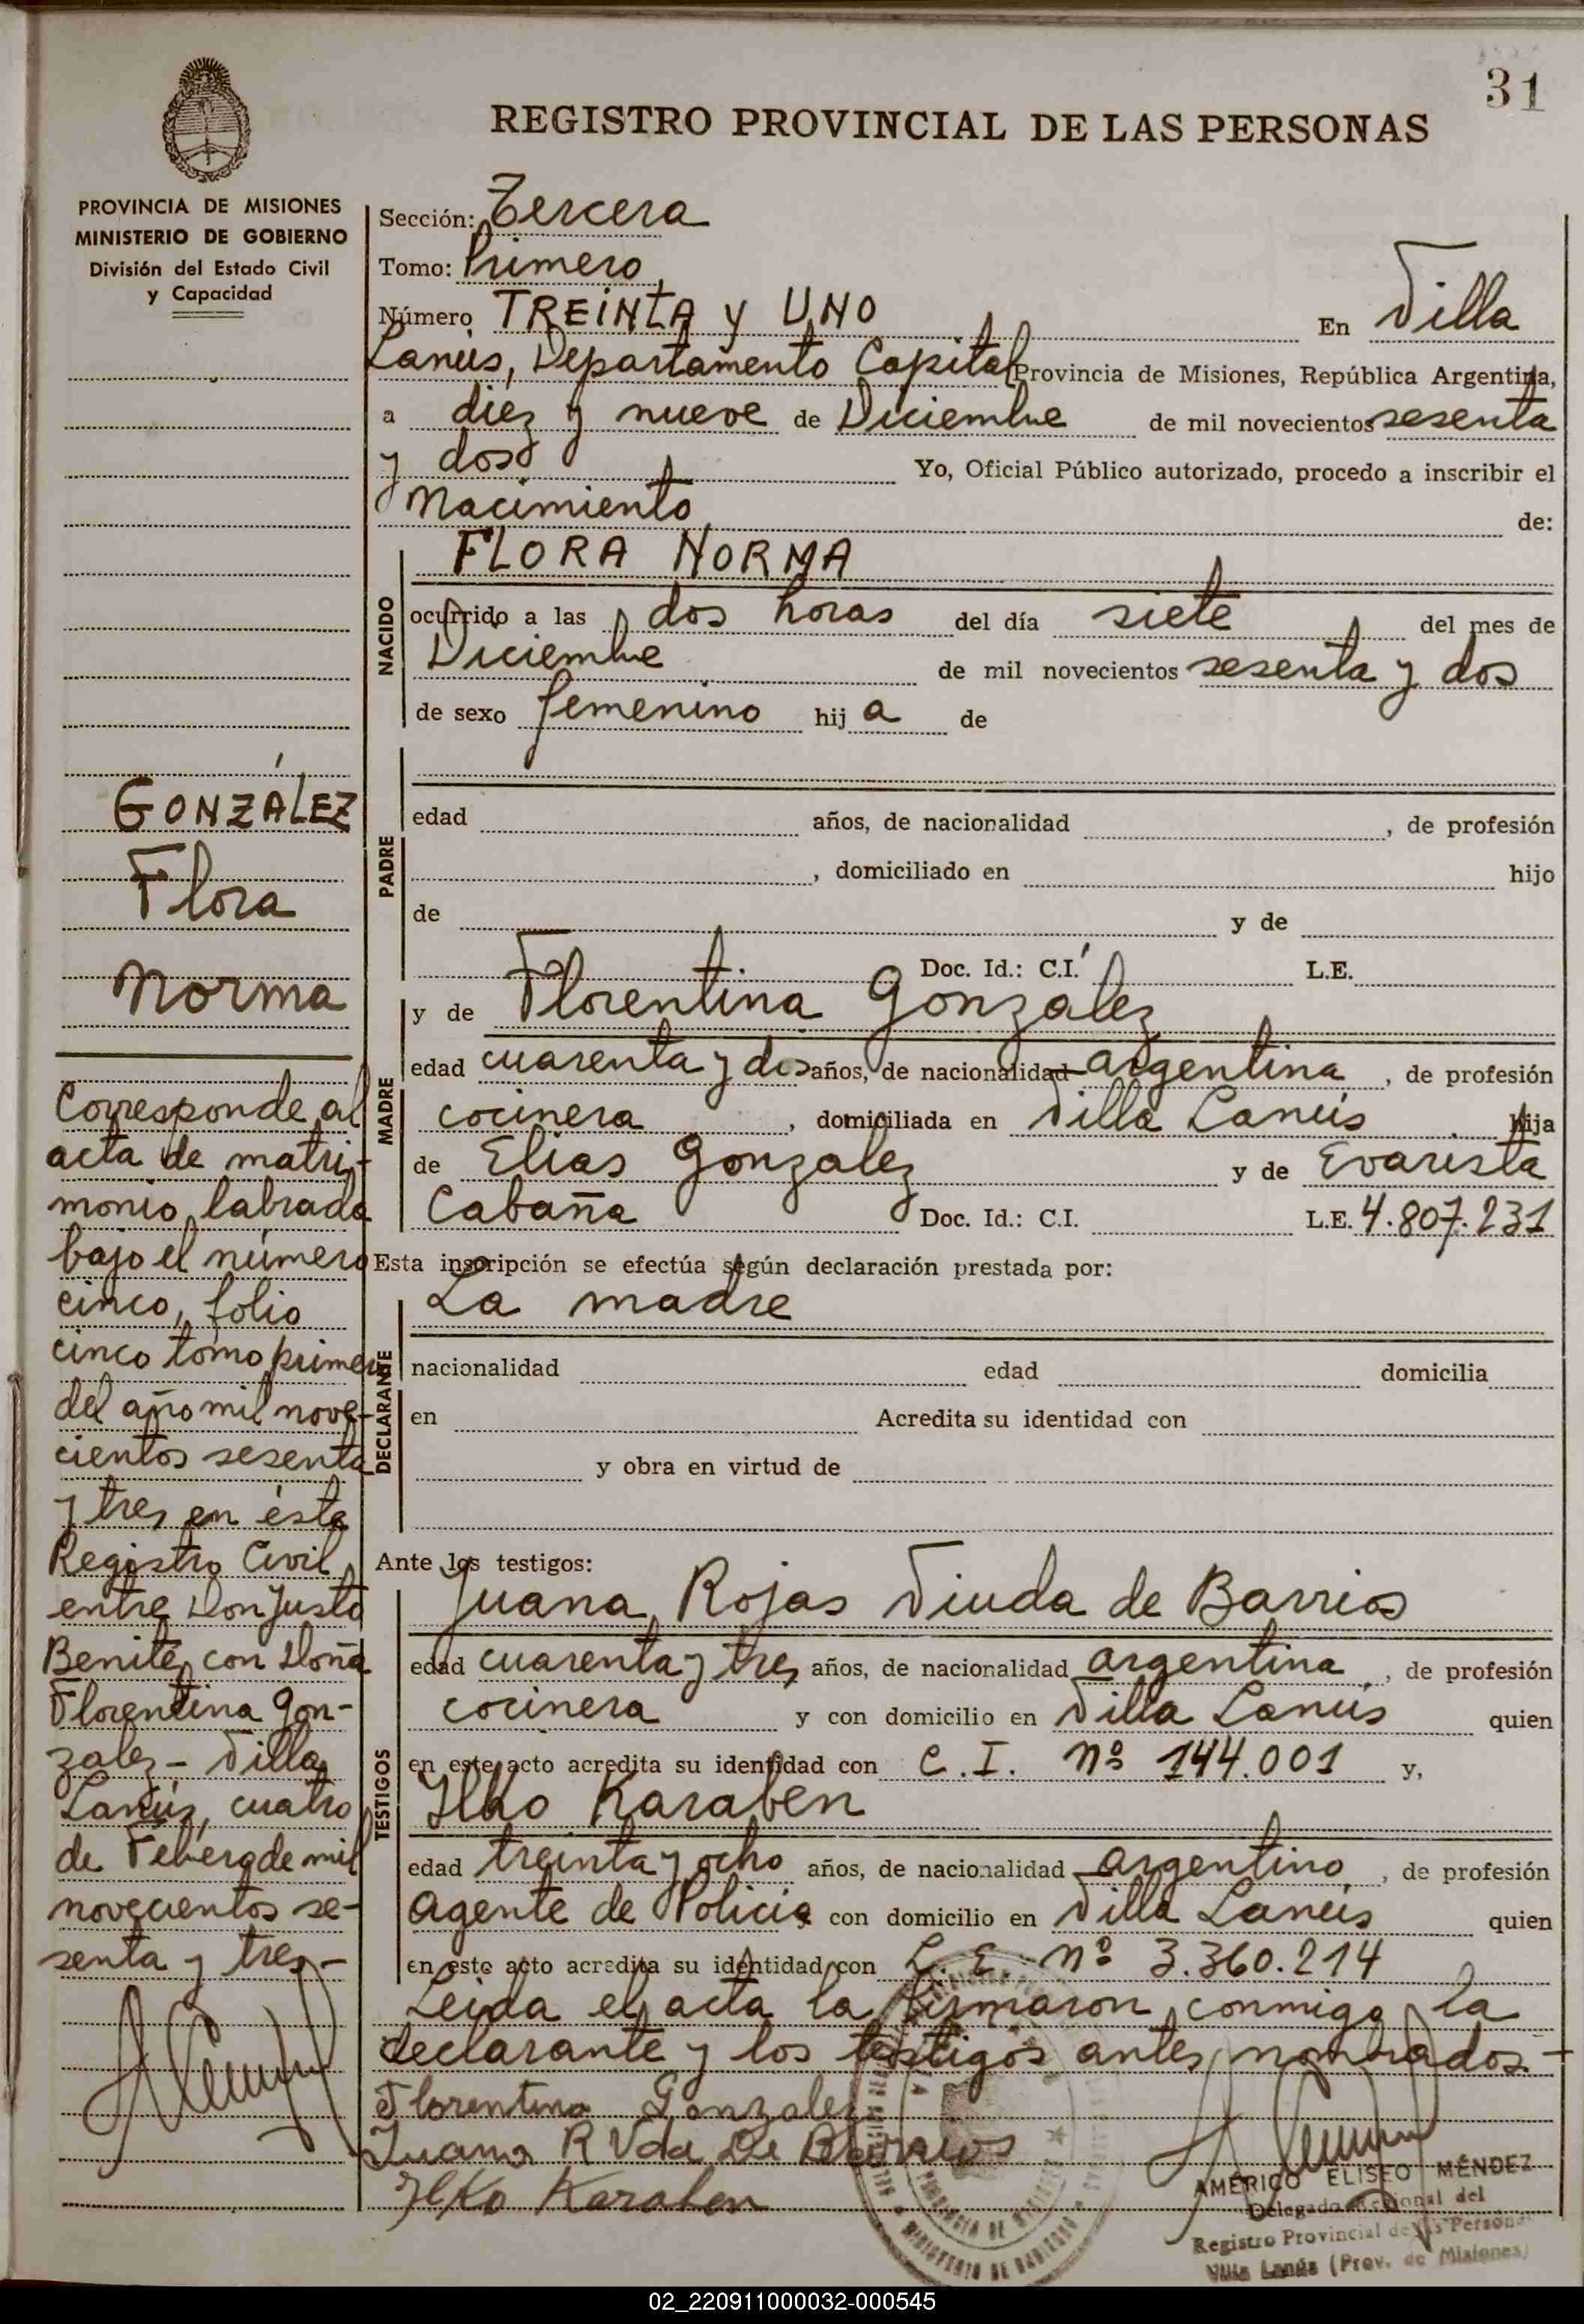 31
REGISTRO PROVINCIAL DE LAS PERSONAS
PROVINCIA DE MISIONES
MINISTERIO DE GOBIERNO
División del Estado Civil
y Capacidad
GONZÁLEZ
Flora
Norma
Corresponde al
acta de matri-
monio labrada
bajo el número
cinco, folio
cinco tomo primero
del año mil nove-
cientos sesenta
y tres en éste
Registro Civil
entre Don Justo
Benitez con Doña
Florentina Gon-
zalez - Villa
Lanús, cuatro
de Febrero de mil
novecientos se-
senta y tres -
Sección: Tercera
Tomo: Primero
Número TREINTA y UNO En Villa
Lanús, Departamento Capital Provincia de Misiones, República Argentina,
a diez y nueve de Diciembre de mil novecientos sesenta
y dos Yo, Oficial Público autorizado, procedo a inscribir el
Nacimiento de:
NACIDO
FLORA NORMA
ocurrido a las dos horas del día siete del mes de
Diciembre de mil novecientos sesenta y dos
de sexo femenino hij a de
PADRE
edad años, de nacionalidad , de profesión
, domiciliado en hijo
de y de
Doc. Id.: C.I. L.E.
MADRE
y de Florentina Gonzalez
edad cuarenta y dos años, de nacionalidad argentina , de profesión
cocinera , domiciliada en Villa Lanús hija
de Elias Gonzalez y de Evarista
Cabaña Doc. Id.: C.I. L.E. 4.807.231
Esta inscripción se efectúa según declaración prestada por:
DECLARANTE
La madre
nacionalidad edad domicilia
en Acredita su identidad con
y obra en virtud de
Ante los testigos:
TESTIGOS
Juana Rojas Viuda de Barrios
edad cuarenta y tres años, de nacionalidad argentina , de profesión
cocinera y con domicilio en Villa Lanús quien
en este acto acredita su identidad con C.I. Nº 144.001 y,
Ilko Karaben
edad treinta y ocho años, de nacionalidad argentino , de profesión
agente de Policia con domicilio en Villa Lanús quien
en este acto acredita su identidad con L.E. Nº 3.360.214
Leida el acta la firmaron conmigo la
declarante y los testigos antes nombrados. -
Florentina Gonzalez
Juana R Vda De Barrios
Ilko Karaben
AMÉRICO ELISEO MÉNDEZ
Delegado Seccional del
Registro Provincial de las Personas
Villa Lanús (Prov. de Misiones)
02_220911000032-000545